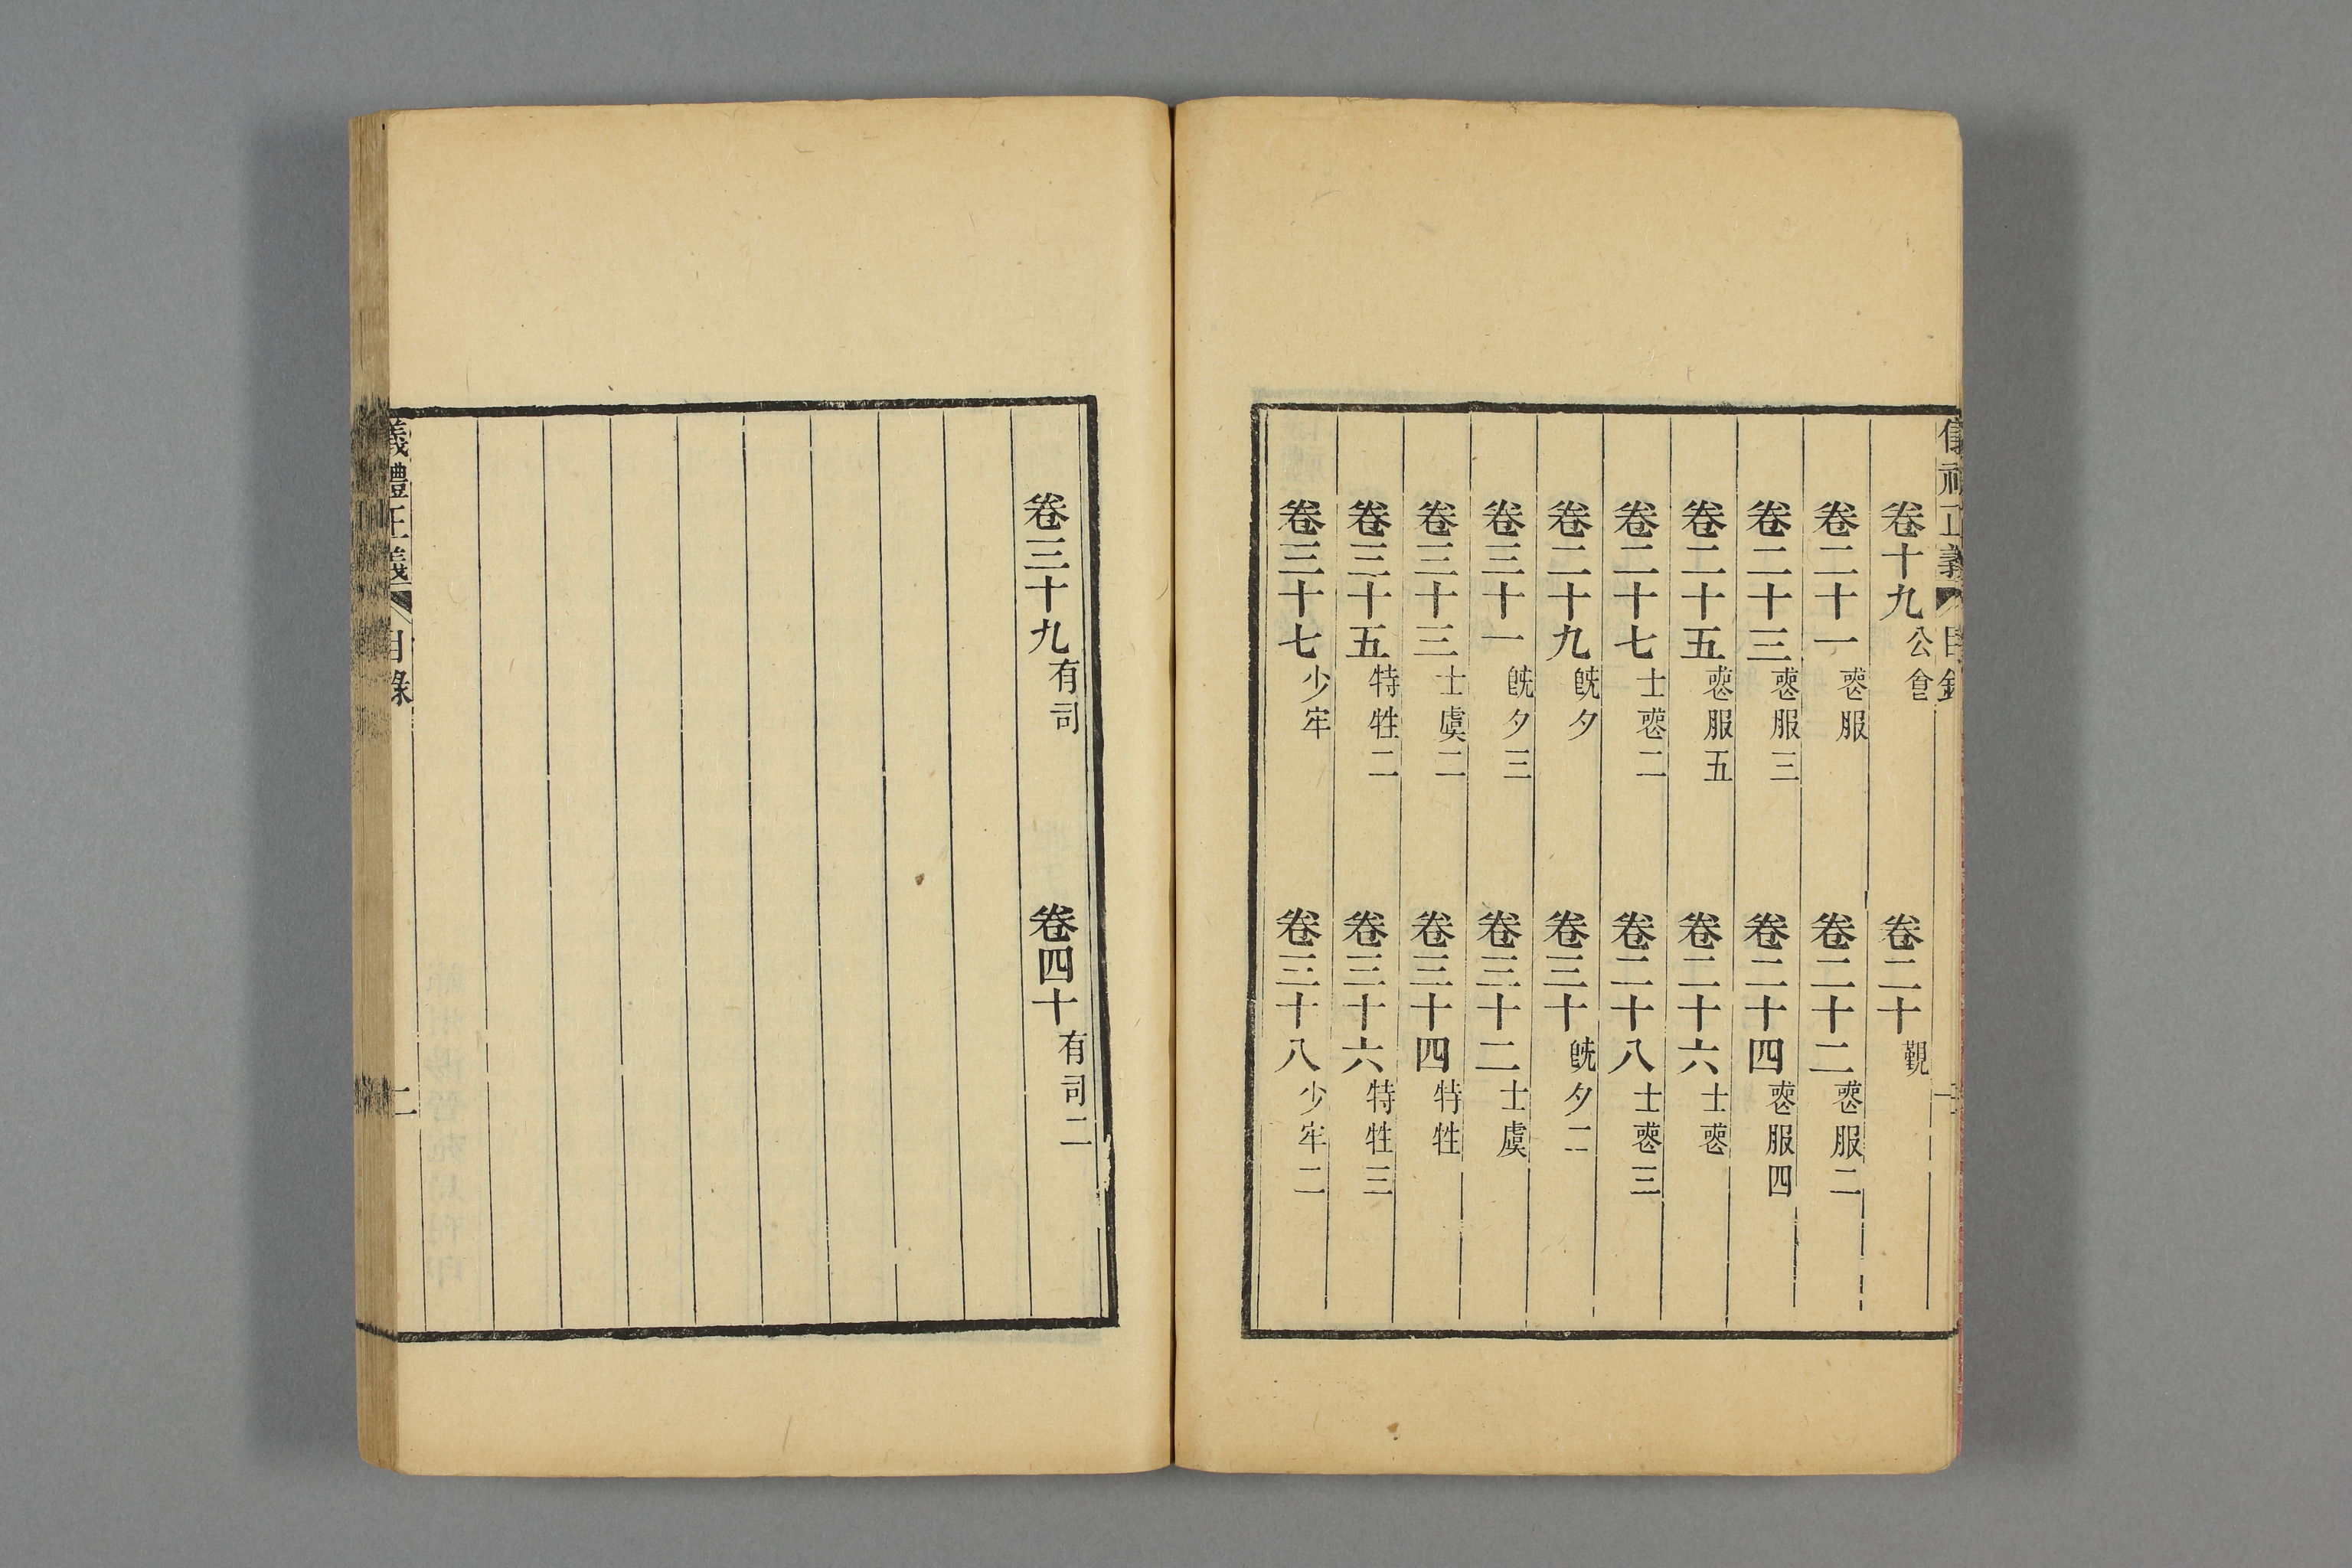 儀禮正義 目錄 二
卷十九公食 卷二十覲
卷二十一䘮服 卷二十二䘮服二
卷二十三䘮服三 卷二十四䘮服四
卷二十五䘮服五 卷二十六士䘮
卷二十七士䘮二 卷二十八士䘮三
卷二十九旣夕 卷三十旣夕二
卷三十一旣夕三 卷三十二士虞
卷三十三士虞二 卷三十四特牲
卷三十五特牲二 卷三十六特牲三
卷三十七少牢 卷三十八少牢二
卷三十九有司 卷四十有司二
儀禮正義 目錄 二